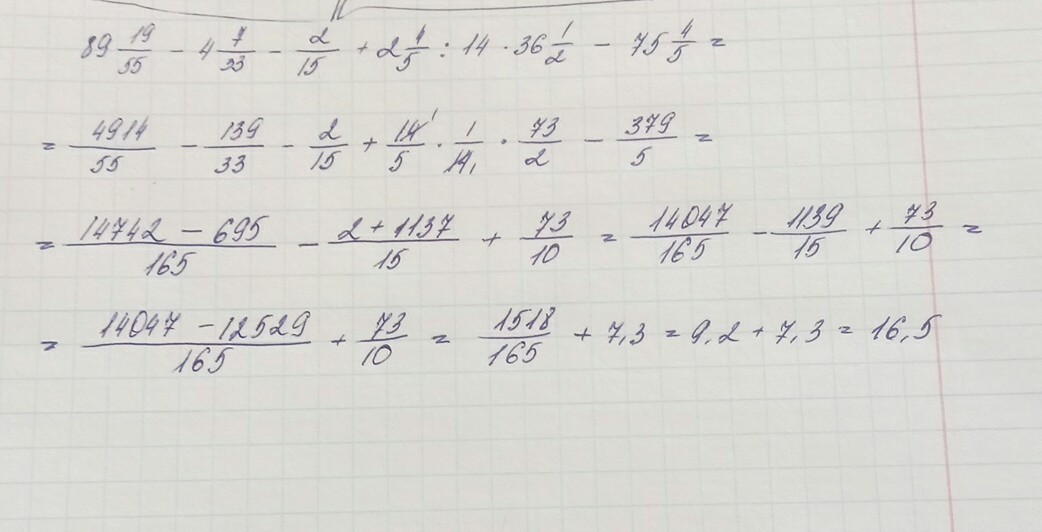 89 19/55 - 4 7/33 - 2/15 + 2 4/5 : 14 · 36 1/2 - 75 4/5 =
= 4914/55 - 139/33 - 2/15 + 14/5 · 1/14 · 73/2 - 379/5 =
= (14742 - 695)/165 - (2 + 1137)/15 + 73/10 = 14047/165 - 1139/15 + 73/10 =
= (14047 - 12529)/165 + 73/10 = 1518/165 + 7,3 = 9,2 + 7,3 = 16,5